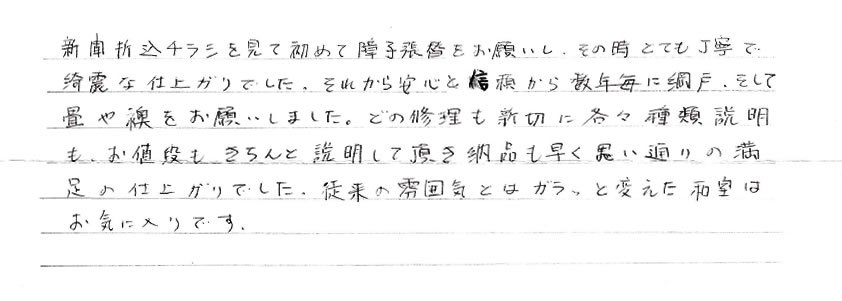 新聞折込チラシを見て初めて障子張替をお願いし、その時とても丁寧で
綺麗な仕上がりでした。それから安心と信頼から数年毎に網戸、そして
畳や襖をお願いしました。どの修理も親切に各々種類説明
も、お値段もきちんと説明して頂き納品も早く思い通りの満
足の仕上がりでした。従来の雰囲気とはガラッと変えた和室は
お気に入りです。